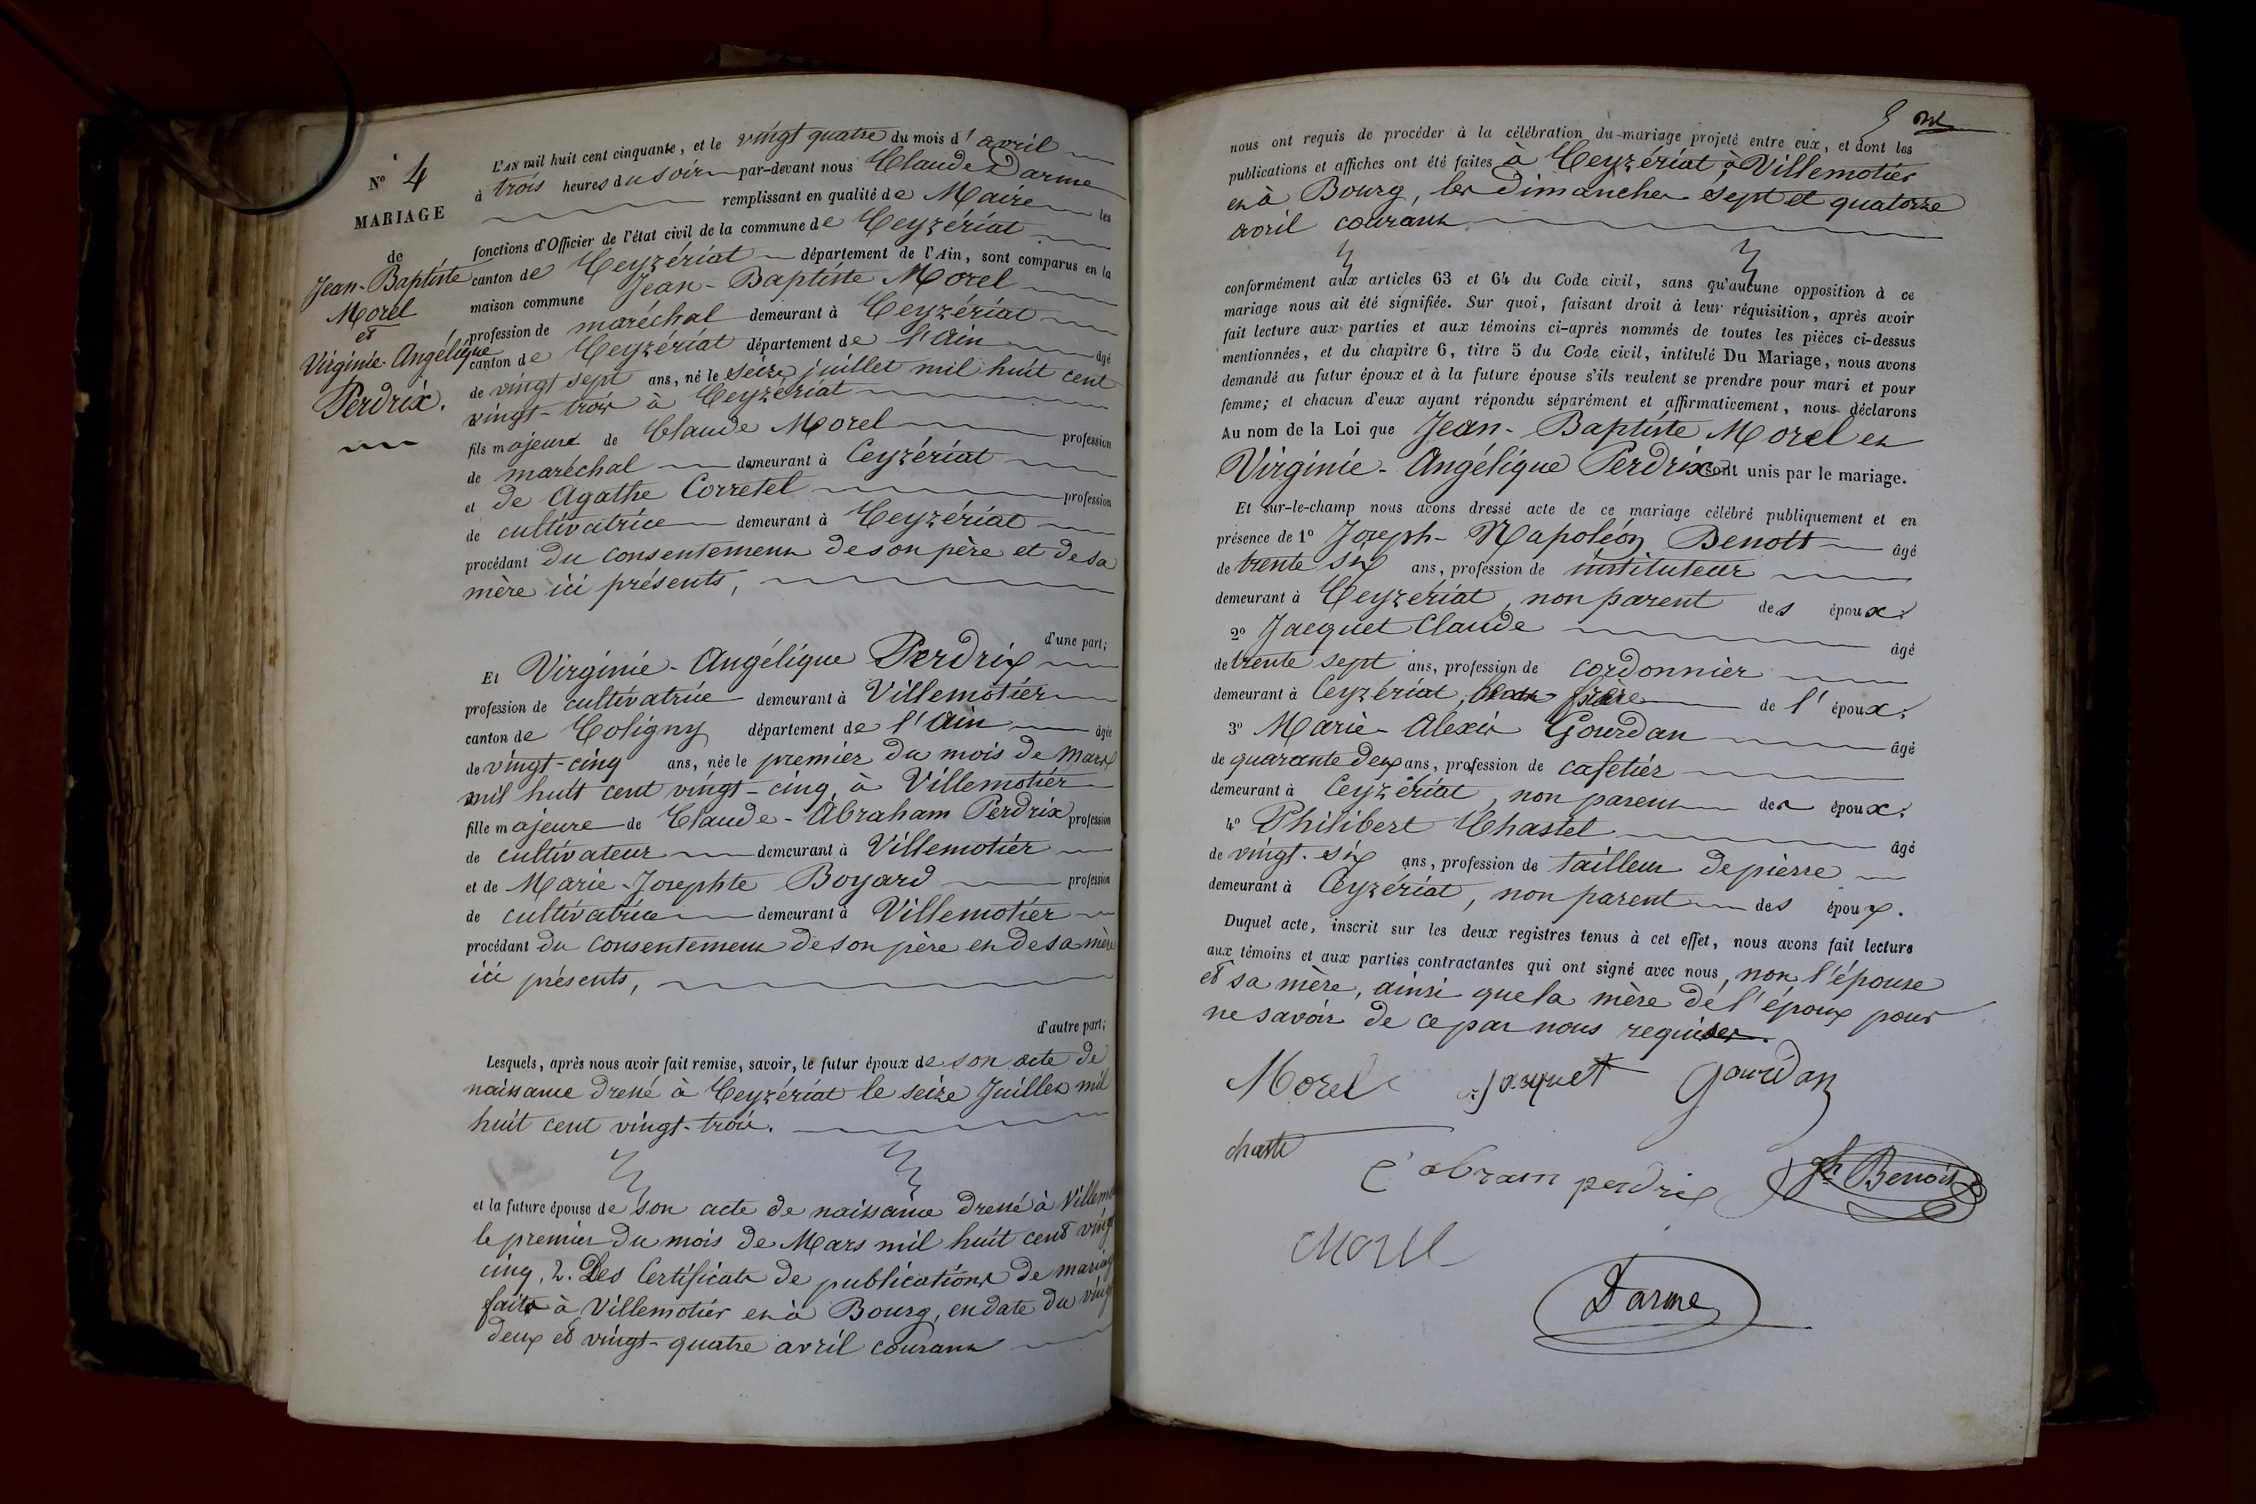 N° 4
MARIAGE
de
Jean-Baptiste
Morel
et
Virginie-Angélique
Perdrix.
L'AN mil huit cent cinquante, et le vingt quatre du mois d'avril
à trois heures du soir par-devant nous Claude Darme
remplissant en qualité de Maire les
fonctions d'Officier de l'état civil de la commune de Ceyzériat
canton de Ceyzériat département de l'Ain, sont comparus en la
maison commune Jean-Baptiste Morel
profession de maréchal demeurant à Ceyzériat
canton de Ceyzériat département de l'Ain âgé
de vingt sept ans, né le seize juillet mil huit cent
vingt-trois à Ceyzériat
fils majeur de Claude Morel profession
de maréchal demeurant à Ceyzériat
et de Agathe Corretel profession
de cultivatrice demeurant à Ceyzériat
procédant du consentement de son père et de sa
mère ici présents,
d'une part;
Et Virginie-Angélique Perdrix
profession de cultivatrice demeurant à Villemotier
canton de Coligny département de l'Ain âgée
de vingt-cinq ans, née le premier du mois de Mars
mil huit cent vingt-cinq, à Villemotier
fille majeure de Claude-Abraham Perdrix profession
de cultivateur demeurant à Villemotier
et de Marie-Josephte Boyard profession
de cultivatrice demeurant à Villemotier
procédant du consentement de son père et de sa mère
ici présents,
d'autre part;
Lesquels, après nous avoir fait remise, savoir, le futur époux de son acte de
naissance dressé à Ceyzériat le seize Juillet mil
huit cent vingt-trois.
et la future épouse de son acte de naissance dressé à Villemo
le premier du mois de Mars mil huit cent vingt
cinq, 2. Des Certificats de publications de mariage
faits à Villemotier et à Bourg, en date du vingt
deux et vingt-quatre avril courant
nous ont requis de procéder à la célébration du mariage projeté entre eux, et dont les
publications et affiches ont été faites à Ceyzériat, à Villemotier
et à Bourg, les Dimanches sept et quatorze
avril courant
conformément aux articles 63 et 64 du Code civil, sans qu'aucune opposition à ce
mariage nous ait été signifiée. Sur quoi, faisant droit à leur réquisition, après avoir
fait lecture aux parties et aux témoins ci-après nommés de toutes les pièces ci-dessus
mentionnées, et du chapitre 6, titre 5 du Code civil, intitulé Du Mariage, nous avons
demandé au futur époux et à la future épouse s'ils veulent se prendre pour mari et pour
femme; et chacun d'eux ayant répondu séparément et affirmativement, nous déclarons
Au nom de la Loi que Jean-Baptiste Morel et
Virginie-Angélique Perdrix sont unis par le mariage.
Et sur-le-champ nous avons dressé acte de ce mariage célébré publiquement et en
présence de 1° Joseph-Napoléon Benoît âgé
de trente six ans, profession de instituteur
demeurant à Ceyzériat, non parent des époux.
2° Jacquet Claude âgé
de trente sept ans, profession de cordonnier
demeurant à Ceyzériat, beau frère de l'époux.
3° Marie-Alexis Gourdan âgé
de quarante deux ans, profession de cafetier
demeurant à Ceyzériat, non parent des époux.
4° Philibert Chastel âgé
de vingt-six ans, profession de tailleur de pierre
demeurant à Ceyzériat, non parent des époux.
Duquel acte, inscrit sur les deux registres tenus à cet effet, nous avons fait lecture
aux témoins et aux parties contractantes qui ont signé avec nous, non l'épouse
et sa mère, ainsi que la mère de l'époux pour
ne savoir de ce par nous requises.
Morel Jaquet Gourdan
chastel
C abram perdrix Jh Benoît
Morel
Darme